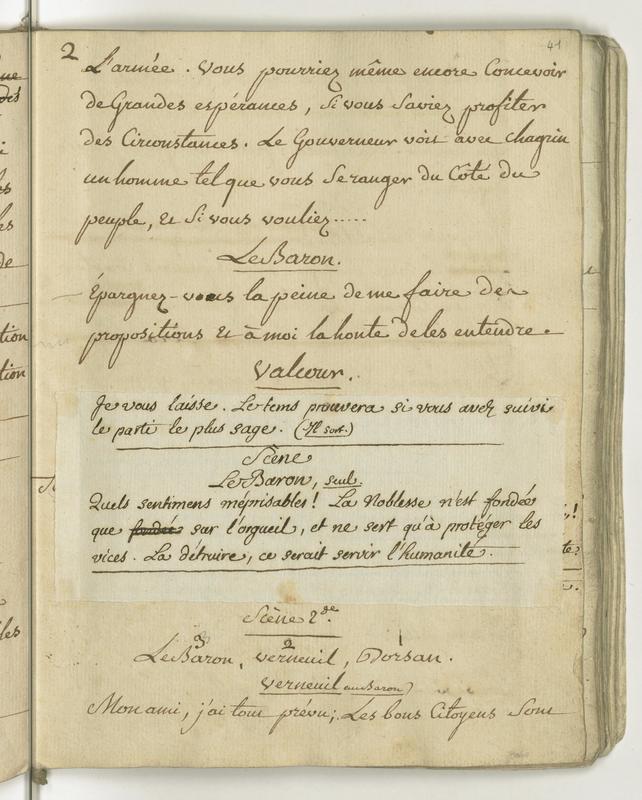 2
41
L'armée. Vous pourriez même encore Concevoir
de Grandes espérances, si vous saviez profiter
des Circonstances. Le Gouverneur voit avec chagrin
un homme tel que vous se ranger du Côté du
peuple, et si vous vouliez.....
Le Baron.
Épargnez-vous la peine de me faire des
propositions et à moi la honte de les entendre.
Valcour.
Je vous laisse. Le tems prouvera si vous avez suivi
le parti le plus sage. (Il sort.)
Scène
Le Baron, seul.
Quels sentimens méprisables! La Noblesse n'est fondée
que fondée sur l'orgueil, et ne sert qu'à protéger les
vices. La détruire, ce serait servir l'humanité.
Scène 2de.
3 2 1
Le Baron, Verneuil, Dorsan.
Verneuil (au Baron)
Mon ami, j'ai tout prévu; Les bons Citoyens sont